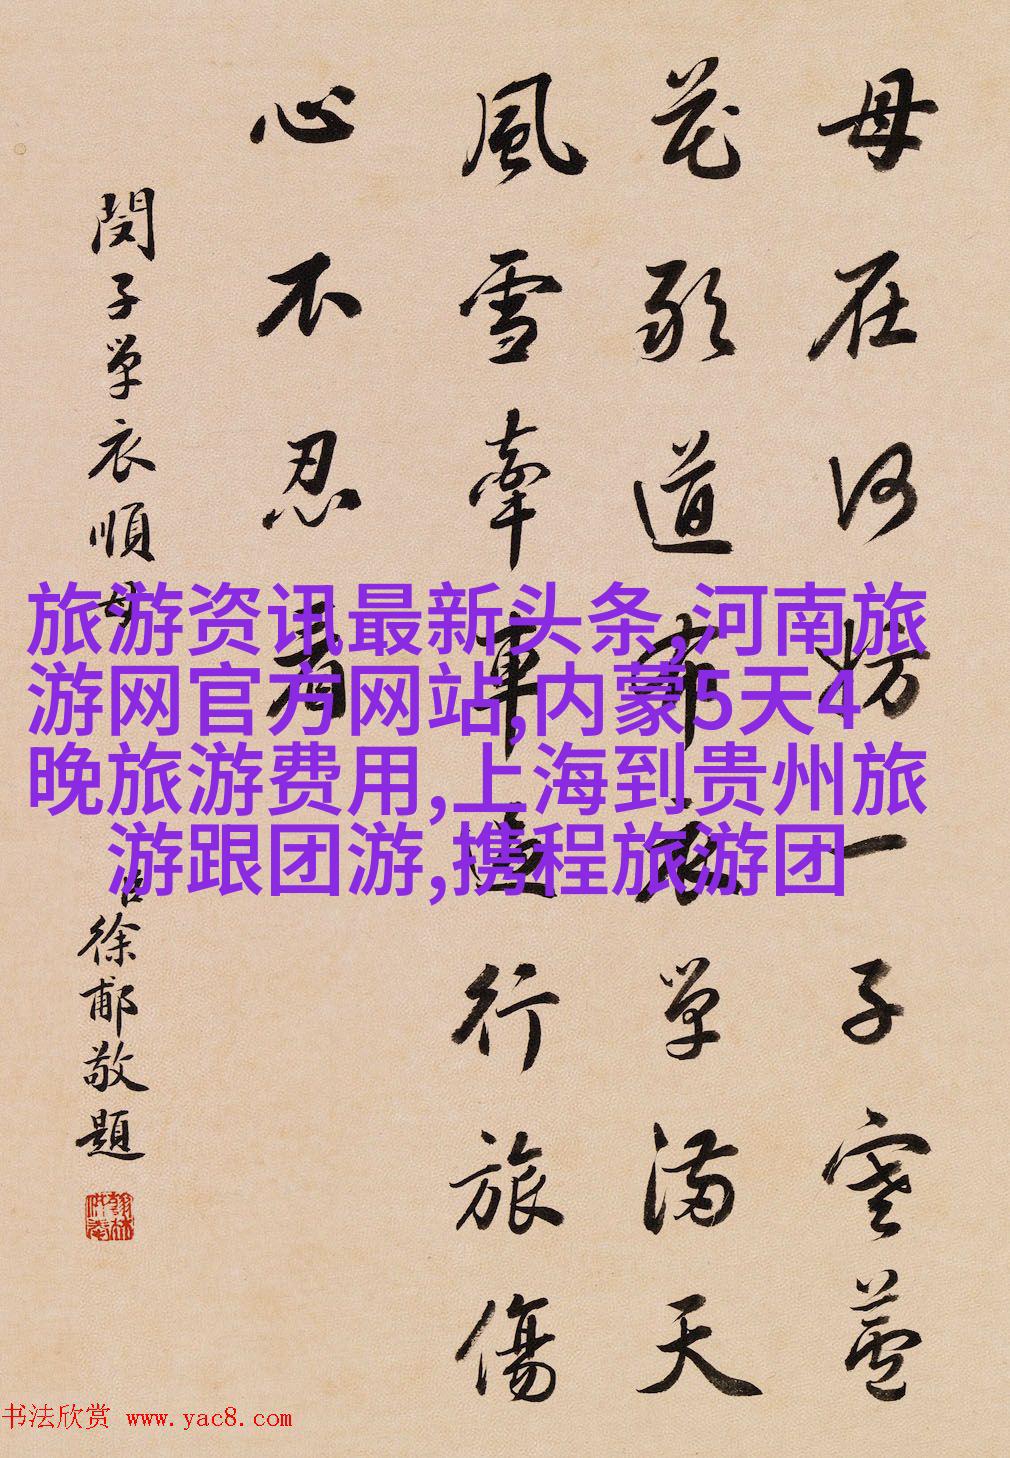 母在何妨一子寒蘆
花歌道布衣單滿天
風雪牽車行旅傷
心不忍看
閔子單衣順母
臣徐郙敬題
翰林供奉
旅游资讯最新头条,河南旅
游网官方网站,内蒙5天4
晚旅游费用,上海到贵州旅
游跟团游,携程旅游团
书法欣赏 www.yac8.com